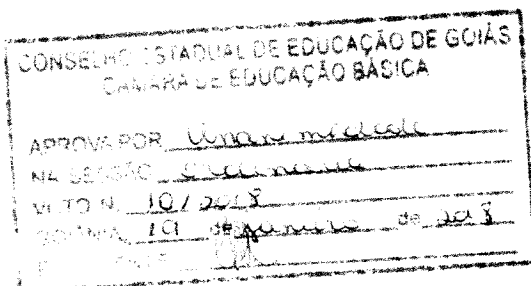 CONSELHO ESTADUAL DE EDUCAÇÃO DE GOIÁS
CÂMARA DE EDUCAÇÃO BÁSICA
APROVA POR Unanimidade
NA SESSÃO Ordinária
VOTO N. 10/2018
GOIÂNIA, 19 de de 2018